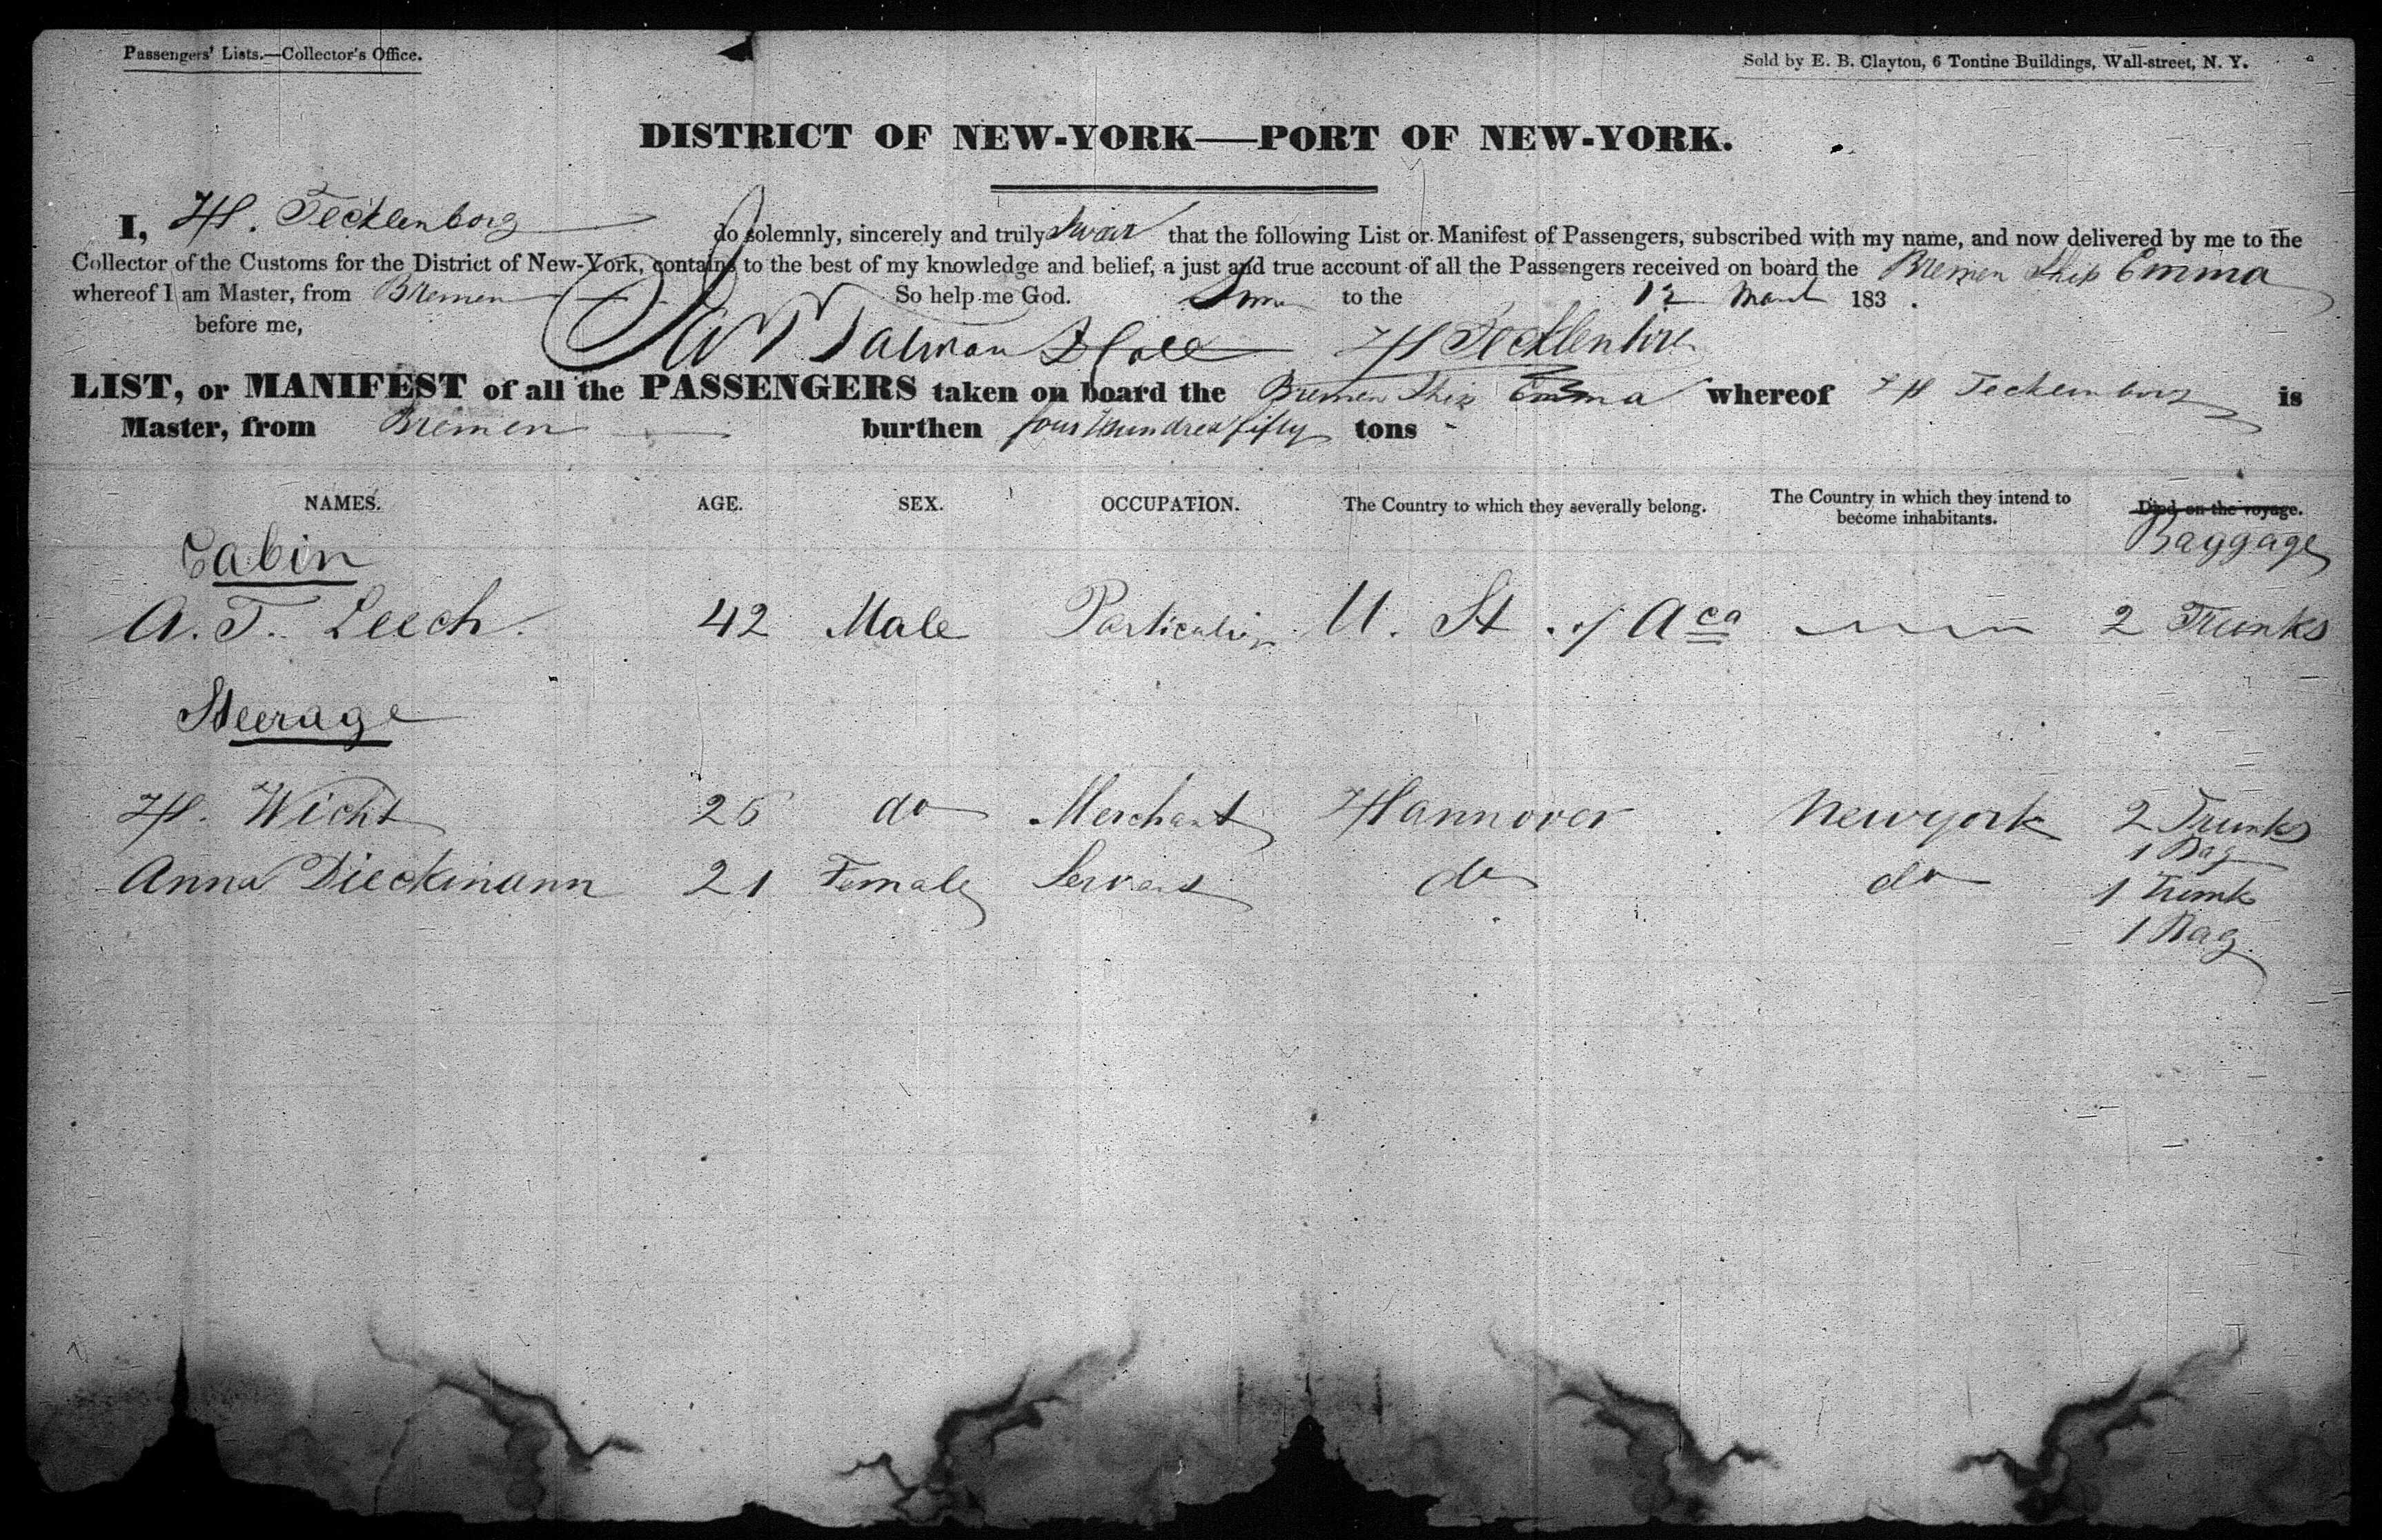 Passengers' Lists.—Collector's Office.
Sold by E. B. Clayton, 6 Tontine Buildings, Wall-street, N. Y.
DISTRICT OF NEW-YORK—PORT OF NEW-YORK.
I, H. Tecklenborg do solemnly, sincerely and truly swear that the following List or Manifest of Passengers, subscribed with my name, and now delivered by me to the
Collector of the Customs for the District of New-York, contains to the best of my knowledge and belief, a just and true account of all the Passengers received on board the Bremen Ship Emma
whereof I am Master, from Bremen So help me God. to the 12 March 183 .
before me, H Tecklenborg
LIST, or MANIFEST of all the PASSENGERS taken on board the Bremen Ship Emma whereof H Tecklenborg is
Master, from Bremen burthen four hundred fifty tons
NAMES. AGE. SEX. OCCUPATION. The Country to which they severally belong. The Country in which they intend to become inhabitants. Died on the voyage.
Baggage
Cabin
A. T. Leech. 42 Male Particulier U. St. of Aca 2 Trunks
Steerage
H. Wicht 26 do Merchant Hannover Newyork 2 Trunks
1 Bag
Anna Dieckmann 21 Female Servant do do 1 Trunk
1 Bag